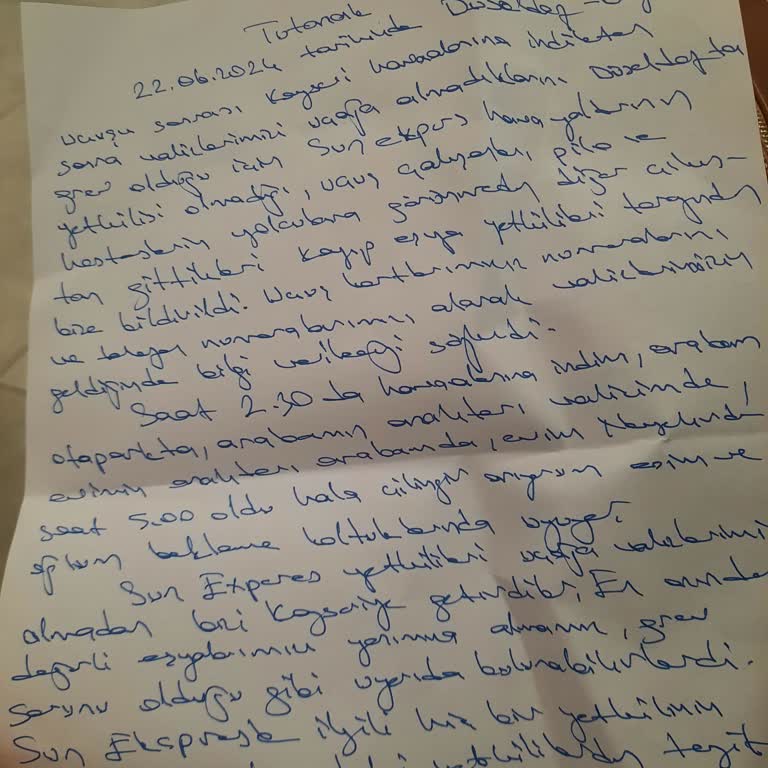 Tutanak
22.06.2024 tarihinde Düseldog -
uçuşu sonrası Kayseri havaalanına indikten
sonra valizlerimizi uçağa almadıklarını Düseldog ta
grev olduğu için Sun ekpres hava yollarının
yetkilisi olmadığı, uçuş çalışanları, pilo ve
hosteslerin yolculara görünmeden diğer çıkış-
tan gittikleri kayıp eşya yetkilileri tarafından
bize bildirildi. Uçuş kartlarımızın numaralarını
ve telefon numaralarımızı alarak valizlerimizin
geldiğinde bilgi verileceği söylendi.
Saat 2.30 da havaalanına indim, arabam
otoparkta, arabamın anahtarı valizimde,
evimin anahtarı arabamda, evim
saat 5.00 oldu hala çilingir arıyorum eşim ve
oğlum bekleme koltuklarında uyuyor.
Sun Expres yetkilileri uçağa valizlerimi
almadan bizi Kayseriye getirdiler, En azından
değerli eşyalarımızı yanımıza almamızı, grev
sorunu olduğu gibi uyarıda bulunabilirlerdi.
Sun Ekspresle ilgili hiç bir yetkilinin
yetkililerden teyit